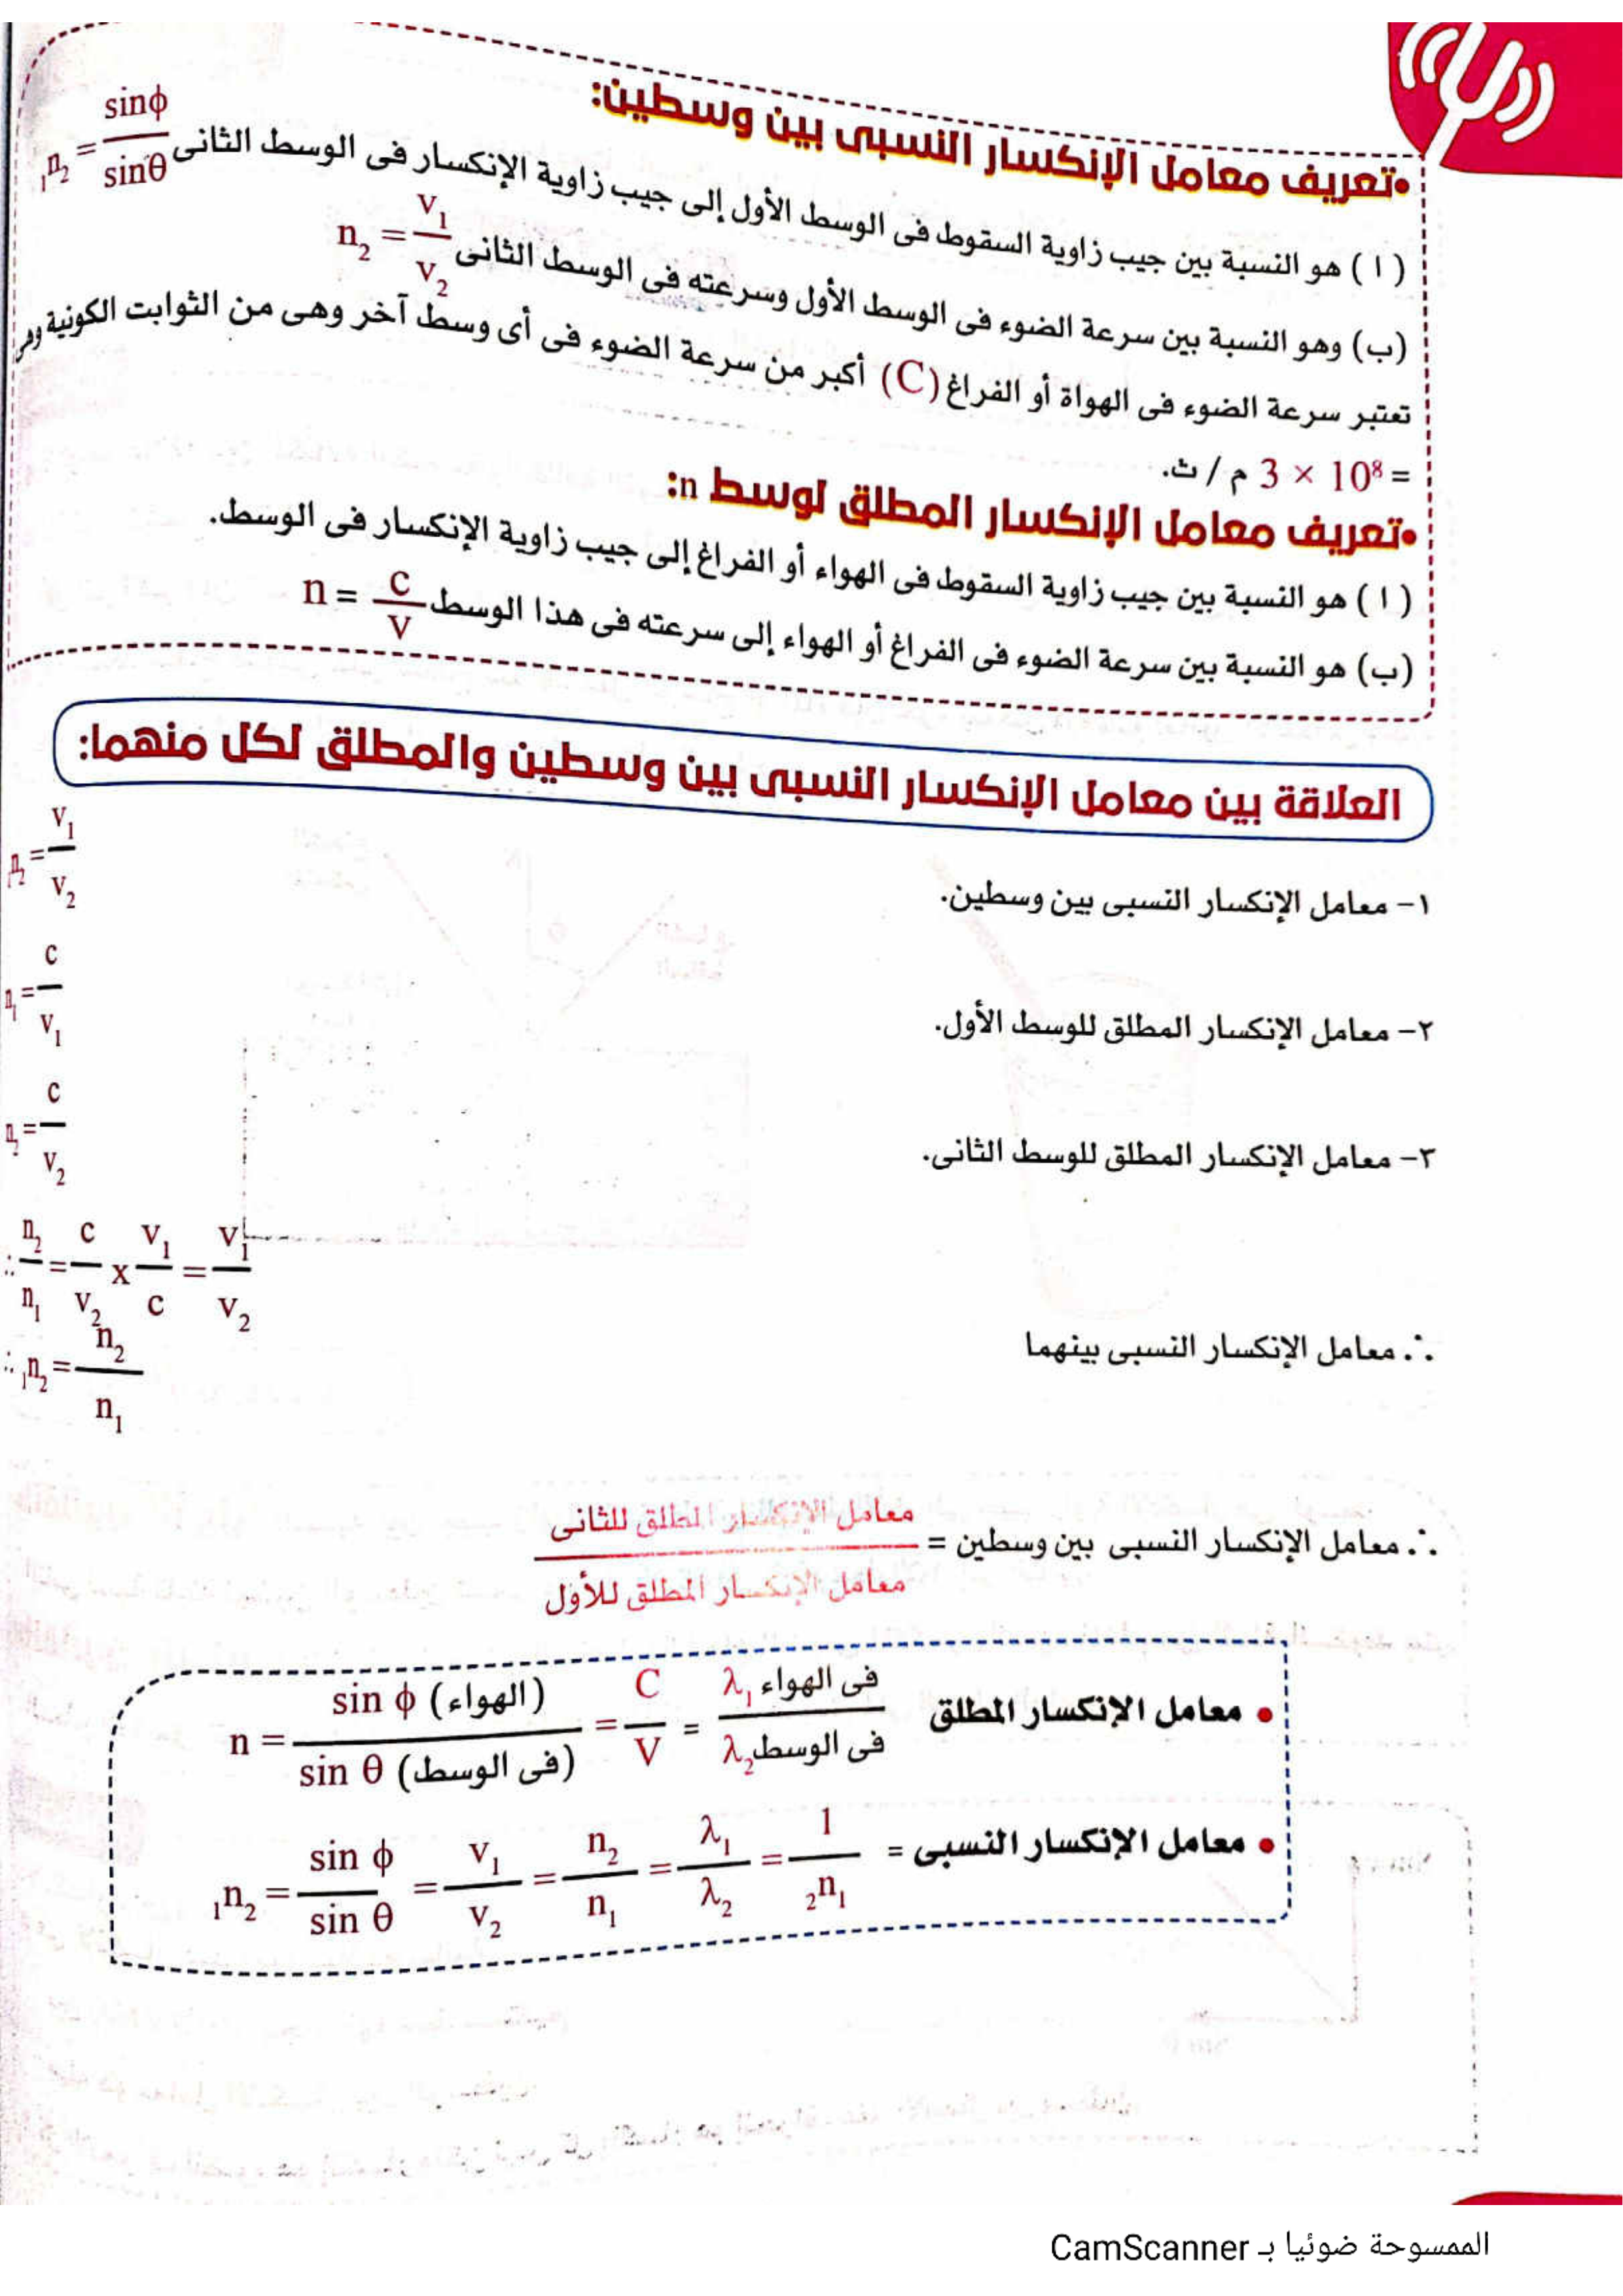 •تعريف معامل الإنكسار النسبى بين وسطين:
( ا ) هو النسبة بين جيب زاوية السقوط فى الوسط الأول إلى جيب زاوية الإنكسار فى الوسط الثانى ₁n₂ = sinϕ / sinθ
(ب) وهو النسبة بين سرعة الضوء فى الوسط الأول وسرعته فى الوسط الثانى n₂ = v₁ / v₂
تعتبر سرعة الضوء فى الهواة أو الفراغ (C) أكبر من سرعة الضوء فى أى وسط آخر وهى من الثوابت الكونية وهى
= 3 × 10⁸ م / ث.
•تعريف معامل الإنكسار المطلق لوسط n:
( ا ) هو النسبة بين جيب زاوية السقوط فى الهواء أو الفراغ إلى جيب زاوية الإنكسار فى الوسط.
(ب) هو النسبة بين سرعة الضوء فى الفراغ أو الهواء إلى سرعته فى هذا الوسط n = c / v
العلاقة بين معامل الإنكسار النسبى بين وسطين والمطلق لكل منهما:
١- معامل الإنكسار النسبى بين وسطين. ₁n₂ = v₁ / v₂
٢- معامل الإنكسار المطلق للوسط الأول. n₁ = c / v₁
٣- معامل الإنكسار المطلق للوسط الثانى. n₂ = c / v₂
∴ n₂ / n₁ = c / v₂ x v₁ / c = v₁ / v₂
∴ معامل الإنكسار النسبى بينهما ∴ ₁n₂ = n₂ / n₁
∴ معامل الإنكسار النسبى بين وسطين = معامل الإنكسار المطلق للثانى / معامل الإنكسار المطلق للأول
• معامل الإنكسار المطلق n = sin ϕ (الهواء) / sin θ (فى الوسط) = C / V = λ₁ فى الهواء / λ₂ فى الوسط
• معامل الإنكسار النسبى = ₁n₂ = sin ϕ / sin θ = v₁ / v₂ = n₂ / n₁ = λ₁ / λ₂ = 1 / ₂n₁
الممسوحة ضوئيا بـ CamScanner